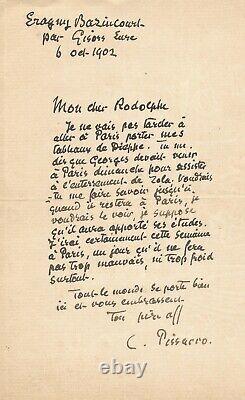 Eragny Bazincourt
par Gisors Eure
6 oct 1902
Mon cher Rodolphe
Je ne vais pas tarder à
aller à Paris porter mes
tableaux de Dieppe. Tu me
dis que Georges devait venir
à Paris dimanche pour assister
à l'enterrement de Zola.
Tu me faire savoir jusqu'à
quand il restera à Paris, je
voudrais le voir, je suppose
qu'il aura apporté ses études.
J'irai, certainement cette semaine
à Paris, un jour qu'il ne fera
pas trop mauvais, ni trop froid
surtout.
Tout le monde se porte bien
ici et vous embrassent
Ton père aff
C. Pissarro.